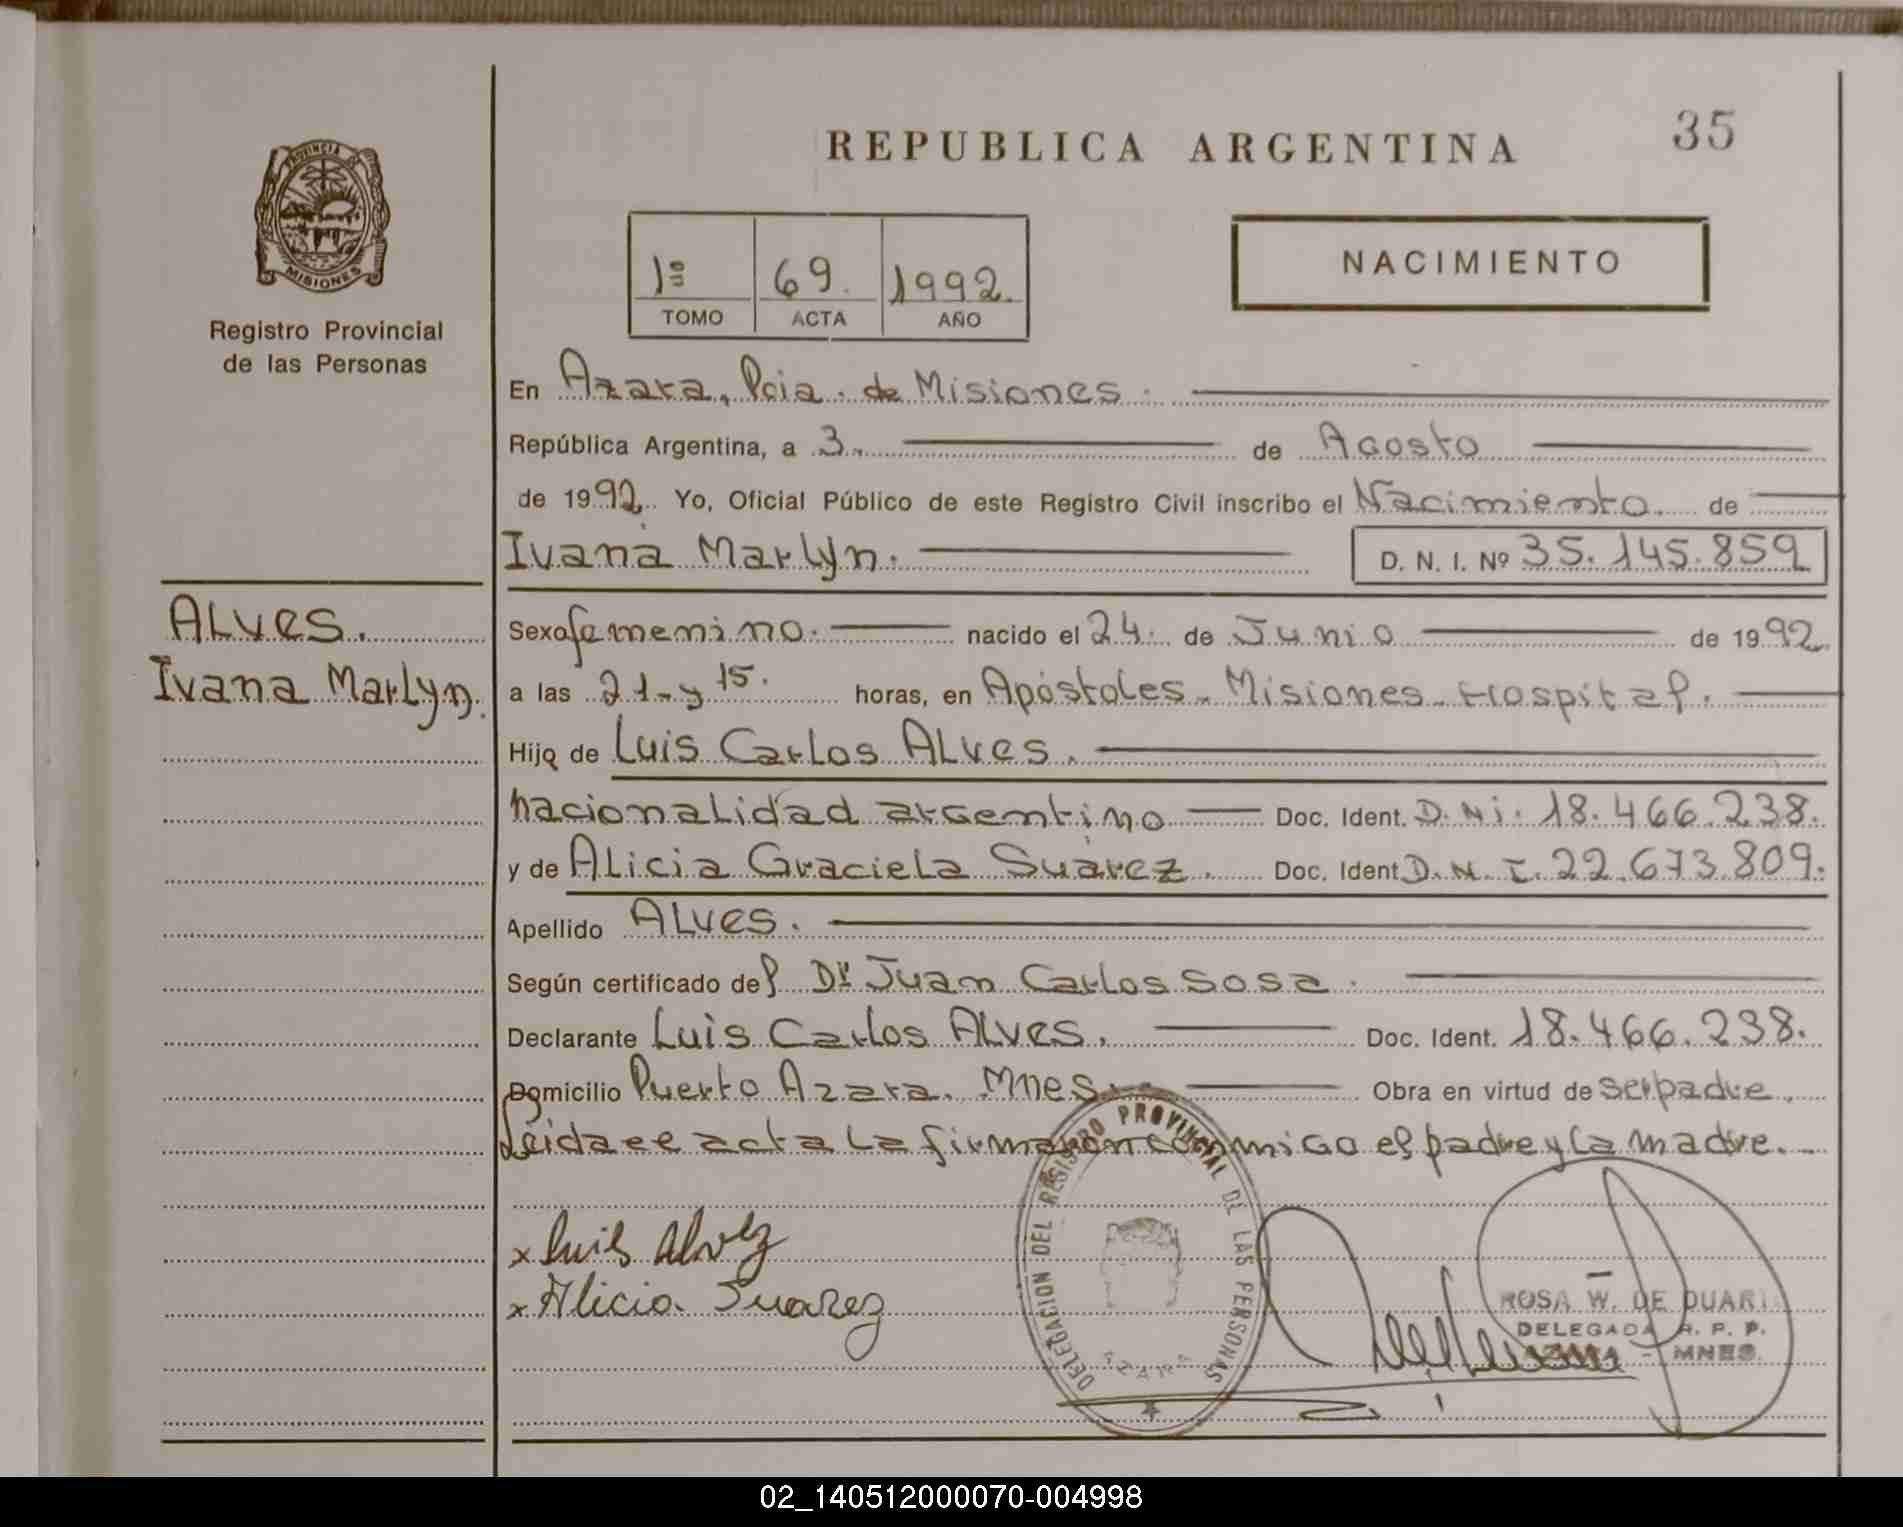 REPUBLICA ARGENTINA
35
PROVINCIA DE
MISIONES
Registro Provincial
de las Personas
1º 69. 1992.
TOMO ACTA AÑO
NACIMIENTO
En Azara, Pcia. de Misiones.
República Argentina, a 3. de Agosto
de 1992. Yo, Oficial Público de este Registro Civil inscribo el Nacimiento. de
Ivana Marlyn. D. N. I. Nº 35.145.859
ALves.
Ivana Marlyn.
Sexo femenino. nacido el 24. de Junio de 1992.
a las 21 y 15. horas, en Apóstoles - Misiones - Hospital.
Hijo de Luis Carlos ALves.
nacionalidad argentino Doc. Ident. D.Ni. 18.466.238.
y de Alicia Graciela Suárez. Doc. Ident D.N.I. 22.673.809.
Apellido ALves.
Según certificado del Dr Juan Carlos Sosa.
Declarante Luis Carlos ALves. Doc. Ident. 18.466.238.
Domicilio Puerto Azara. Mnes. Obra en virtud de ser padre.
Leida el acta la firmaron conmigo el padre y la madre. -
x Luis Alvez
x Alicia Suarez
DELEGACION DEL REGISTRO PROVINCIAL DE LAS PERSONAS
AZARA
ROSA W. DE DUARTE
DELEGADA R. P. P.
AZARA - MNES.
02_140512000070-004998